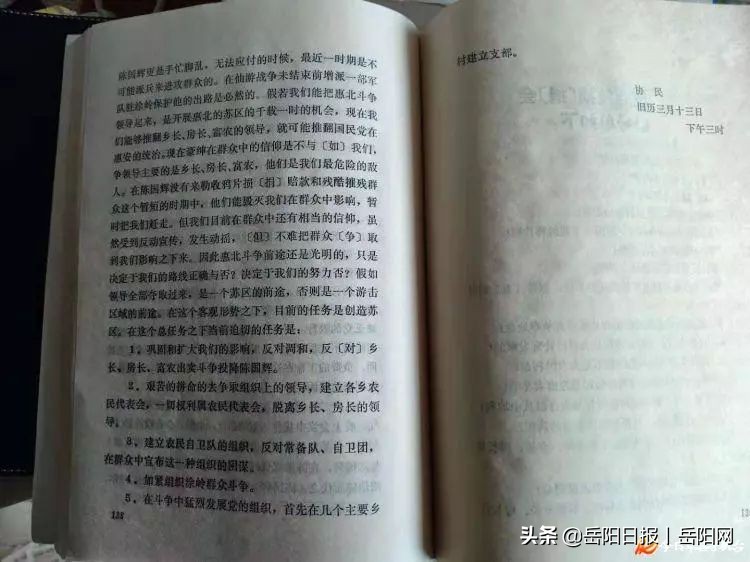 陈国辉更是手忙脚乱，无法应付的时候，最近一时期是不
可能派兵来进攻群众的。在仙游战争未结束前增派一部军
队驻涂岭保护他的出路是必然的。假若我们能把惠北斗争
领导起来，是开展惠北的苏区的千载一时的机会，现在我
们能够推翻乡长、房长、富农的领导，就可能推翻国民党在
惠安的统治。现在豪绅在群众中的信仰是不与〔如〕我们，
争领导主要的是乡长、房长、富农，他们是我们最危险的敌
人。在陈国辉没有来勒收鸦片损〔捐〕赔款和残酷摧残群
众这个暂短的时期中，他们能毁灭我们在群众中影响，暂
时把我们赶走。但我们目前在群众中还有相当的信仰，虽
然受到反动宣传，发生动摇，〔但〕不难把群众〔争〕取
到我们影响之下来。因此惠北斗争前途还是光明的，只是
决定于我们的路线正确与否？决定于我们的努力否？假如
领导全部夺取过来，是一个苏区的前途，否则是一个游击
区域的前途。在这个客观形势之下，目前的任务是创造苏
区。在这个总任务之下当前迫切的任务是：
1、巩固和扩大我们的影响，反对调和，反〔对〕乡
长、房长、富农出卖斗争投降陈国辉。
2、艰苦的拼命的去争取组织上的领导，建立各乡农
民代表会，一切权利属农民代表会，脱离乡长、房长的领
导。
3、建立农民自卫队的组织，反对常备队、自卫团，
在群众中宣布这一种组织的阴谋。
4、加紧组织涂岭群众斗争。
5、在斗争中猛烈发展党的组织，首先在几个主要乡
138
村建立支部。
协民
旧历三月十三日
下午三时
头条 @岳阳日报 | 岳阳网